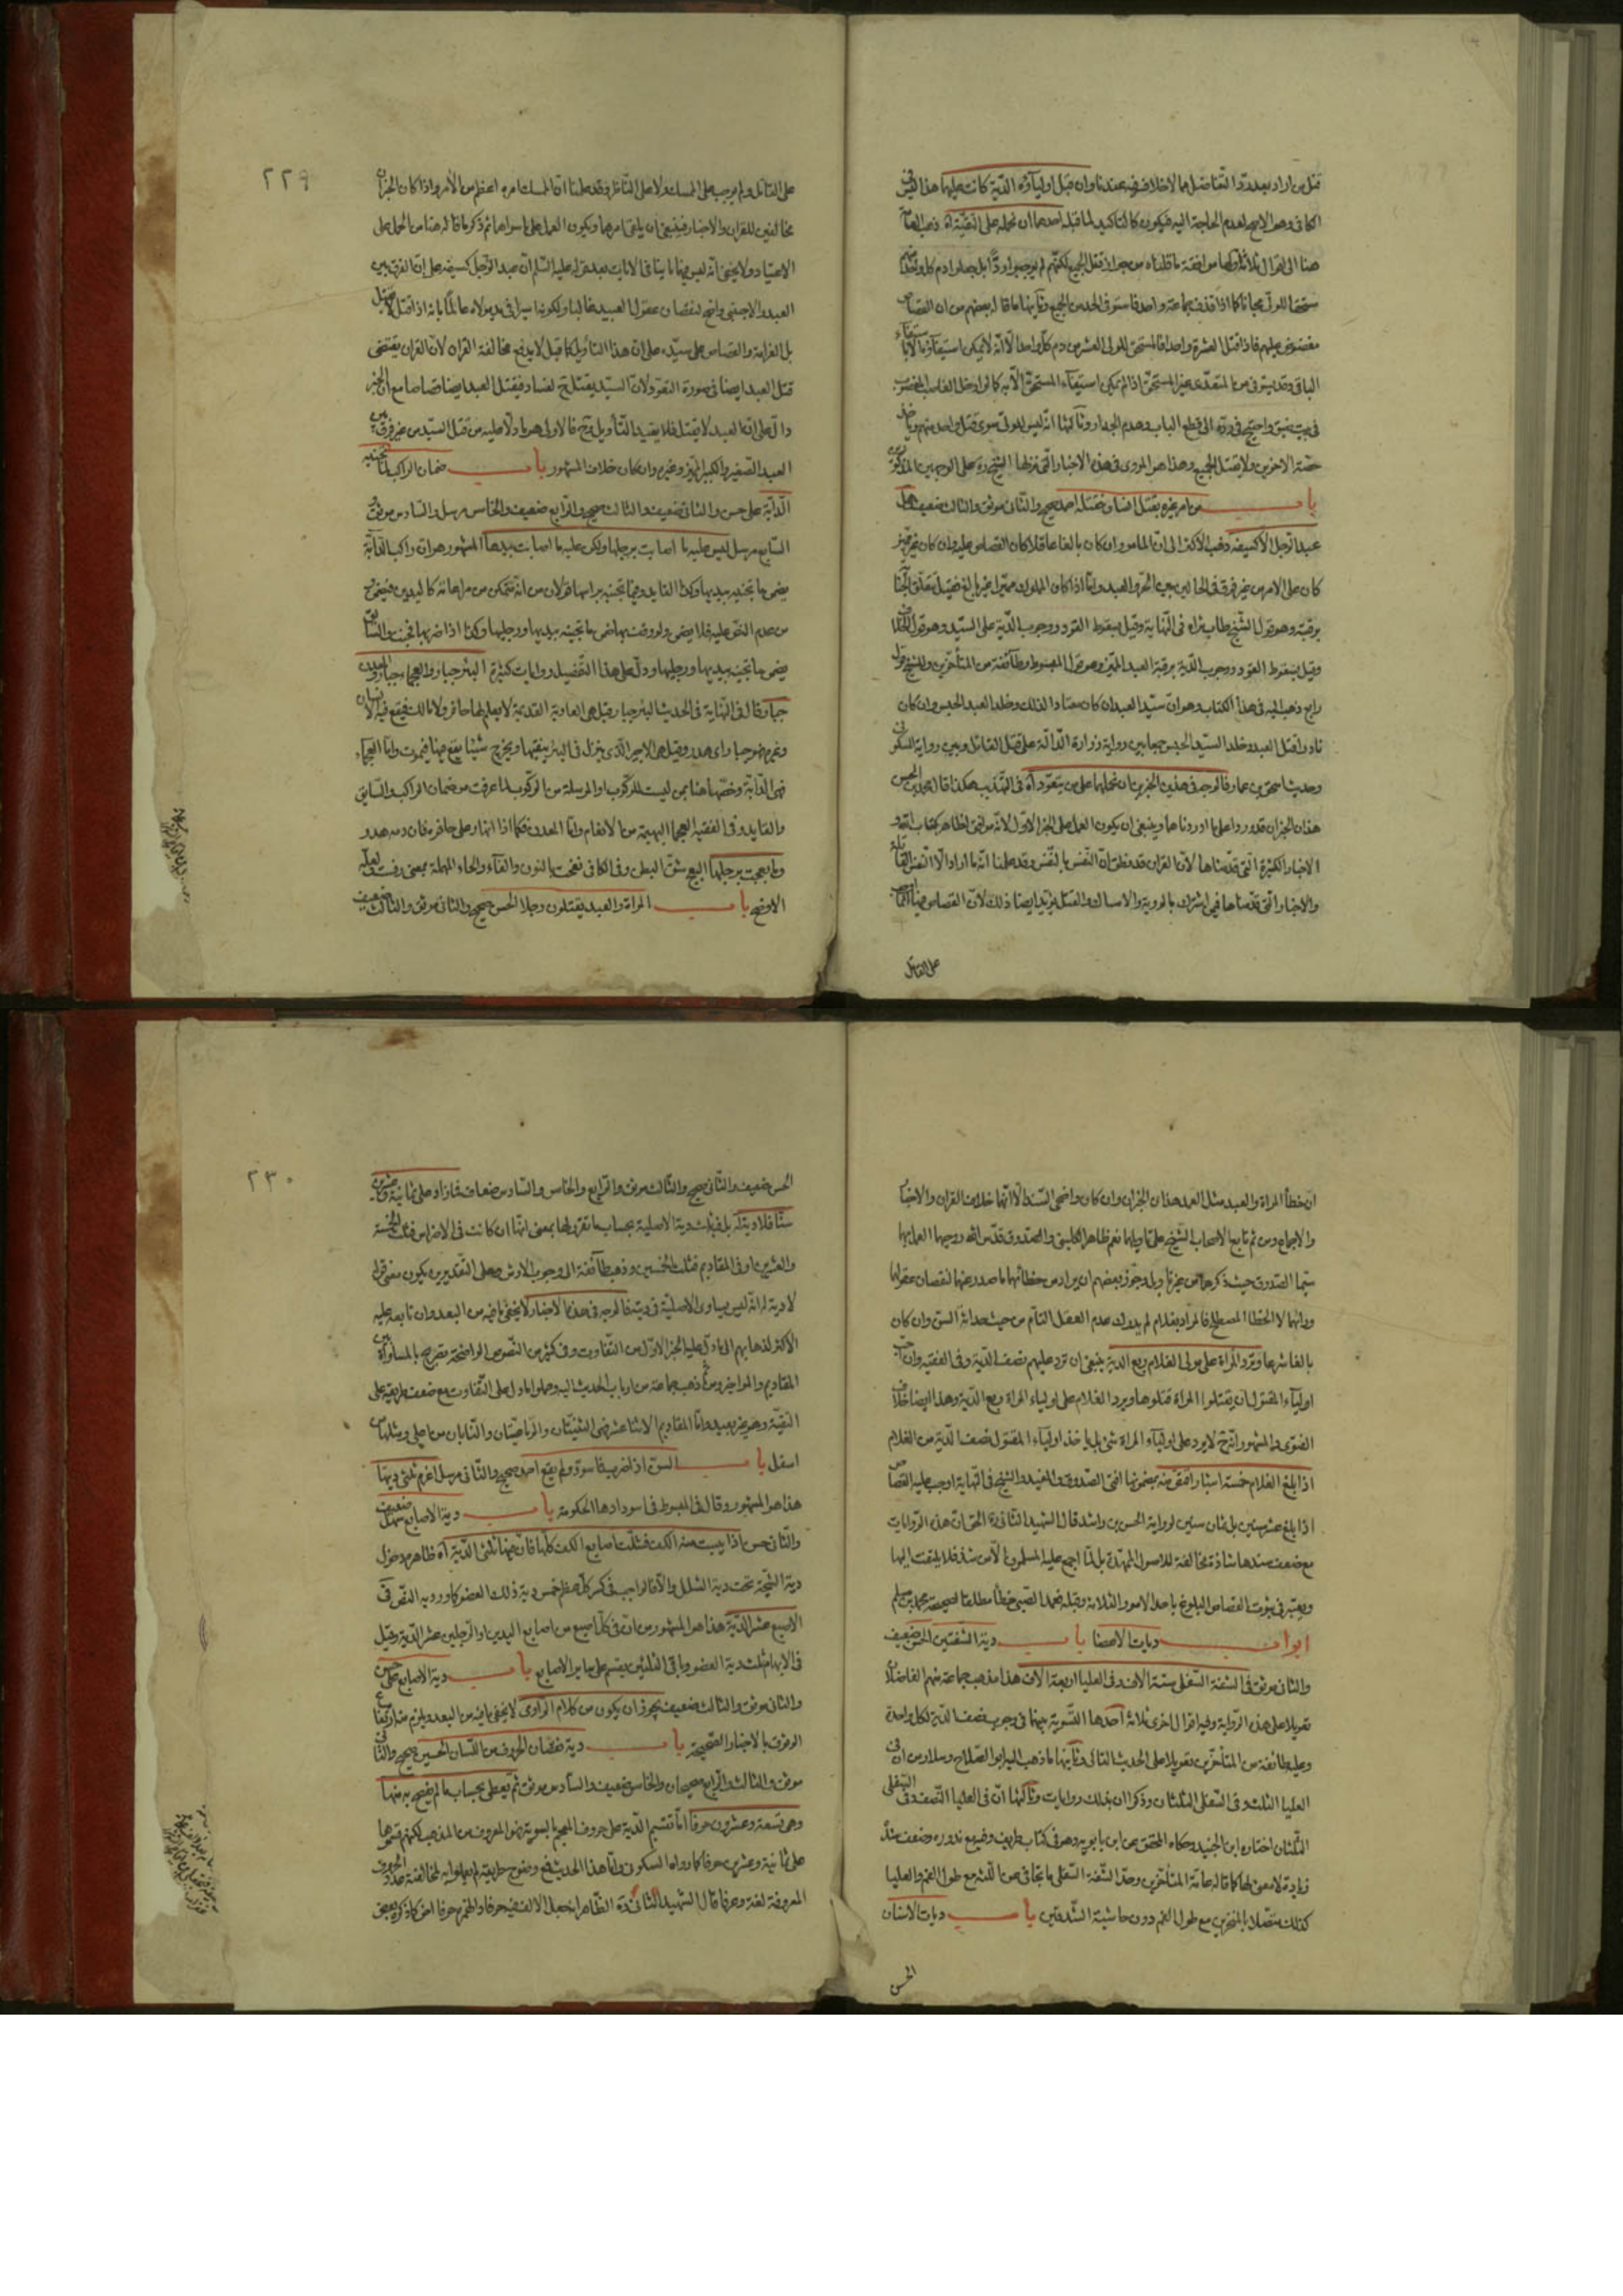 قتل من اراد بعد رد التفاضل مما لا خلاف فيه عندنا وان قبل اولياؤه الدية كانت عليهما هذا ليس في
الكافي وهو الاصح لعدم الحاجة اليه فيكون كالتاكيد لما قبله احدهما ان نحمله على التقية اه ذهب العامة
هنا الى اقوال ثلاثة اولها موافقة ما قلناه من جواز قتل الجميع لكنهم لم يوجبوا ردا بل جعلوا دم كل واحد منهم
مستحقا للولي مجانا كما اذا قذف جماعة واحدا فاستوفى الحد من الجميع وثانيها ما قاله بعضهم من ان القصاص
مفضوض عليهم فاذا قتل العشرة واحدا فالمستحق للولي العشر من دم كل واحد الا انه لا يمكن استيفاؤه الا باستيفاء
الباقي وقد يستوفى من المتعدي غير المستحق اذا لم يمكن استيفاء المستحق الا به كما لو ادخل الغاصب المغصوب
في بيت ضيق واحتيج في رده الى قطع الباب وهدم الجدار وثالثها انه ليس للولي سوى قتل واحد منهم وياخذ
حصته الاخرين ولا يقتل الجميع وهذا هو المروي في هذه الاخبار التي نزلها الشيخ ره على الوجهين المذكورين
باب من امر غيره بقتل انسان فقتله احد صحيح والثاني موثق والثالث ضعيف وهل
عبد الرجل الا كسيفه ذهب الاكثر الى ان المامور ان كان بالغا عاقلا كان القصاص عليه وان كان غير مميز
كان على الامر من غير فرق في الحالين بين الحر والعبد واما اذا كان المملوك مميزا غير بالغ فقيل يتعلق الجناية
برقبته وهو قول الشيخ طاب ثراه في النهاية وقيل بسقوط القود ووجوب الدية على السيد وهو قول الخلاف
وقيل بسقوط القود ووجوب الدية برقبة العبد المميز وهو قول المبسوط وطائفة من المتاخرين وللشيخ قول
رابع ذهب اليه في هذا الكتاب وهو ان سيد العبد ان كان معتادا لذلك وخلد العبد الحبس وان كان
نادرا قتل العبد وخلد السيد الحبس جمعا بين رواية زرارة الدالة على قتل القاتل وبين رواية السكوني
وحديث اسحق بن عمار فالوجه في هذين الخبرين ان نحملهما على من يتعود اه في التهذيب هكذا قال محمد بن الحسن
هذان الخبران قد وردا على ما اوردناهما وينبغي ان يكون العمل على الخبر الاول لانه موافق لظاهر كتاب الله و
الاخبار الكثيرة التي قدمناها لان القران قد نطق ان النفس بالنفس وقد علمنا انه ما اراد الا النفس القاتلة
والاخبار التي قدمناها فيمن اشترك بالرؤية والامساك والقتل يؤيد ايضا ذلك لان القصاص فيها انما اوجب
على القاتل
٢٢٩
على القاتل ولم يوجب على الممسك ولا على الناظر وقد علمنا ان الممسك امره اعظم من الامر واذا كان الخبران
مخالفين للقران والاخبار فينبغي ان يلغى امرهما ويكون العمل على ما سواهما ثم ذكر ما قاله هنا من الحمل على
الاعتياد ولا يخفى انه ليس فيها ما ينافي الايات بعد قوله عليه السلام ان عبد الرجل كسيفه على ان الفرق بين
العبد والاجنبي واضح لنقصان عقول العبيد غالبا ولكونه اسيرا في يد مولاه عالما بانه اذا قتل لا يقتل
بل الغرامة والقصاص على سيده على ان هذا التاويل كما قبل لا يدفع مخالفة القران لان القران يقتضي
قتل العبد ايضا في صورة التعود لان السيد يقتل ح لفساد فيقتل العبد ايضا قصاصا مع ان الخبر
دال على ان العبد لا يقتل فلا يفيد التاويل ح فالاولى هو ما دلا عليه من قتل السيد من غير فرق بين
العبد الصغير والكبير المميز وغيره وان كان خلاف المشهور باب ضمان الراكب لما تجنيه
الدابة على حسن والثاني ضعيف والثالث صحيح والرابع ضعيف والخامس مرسل والسادس موثق و
السابع مرسل ليس عليه ما اصابت برجلها ولكن عليه ما اصابت بيدها المشهور هو ان راكب الدابة
يضمن ما تجنيه بيديها وكذا القايد وفيما تجنيه براسها قولان من انه متمكن من مراعاته كاليدين فيضمن و
من عدم النص عليه فلا يضمن ولو وقفت بها ضمن ما تجنيه بيديها ورجليها وكذا اذا ضربها فجنت والسائق
يضمن ما تجنيه بيديها ورجليها ودل على هذا التفصيل روايات كثيرة البئر جبار والعجماء جبار والمعدن
جبار وقال في النهاية في الحديث البئر جبار قيل هي العادية القديمة لا يعلم لها حافر ولا مالك فيقع فيه الانسان
وغيره فهو جبار اي هدر وقيل هي الاجير الذي ينزل في البئر ينقيها ويخرج شيئا يقع فيها فيموت واما العجماء
فهي الدابة وخصها هنا بمن ليست للركوب او المرسلة من الركوب لما عرفت من ضمان الراكب والسايق
والقايد وفي الفقيه العجماء البهيمة من الانعام واما المعدن فكما اذا انهار على حافره فان دمه هدر
وما بعجت برجلها البعج شق البطن وفي الكافي نفحت بالنون والفاء والحاء المهملة بمعنى رفست ولعله
الاوضح باب المراة والعبد يقتلون رجلا الحسن صحيح والثاني موثق والثالث ضعيف
ان خطأ المراة والعبد مثل العمد هذان الخبران وان كان واضحي السند الا انهما خلاف القران والاخبار
والاجماع ومن ثم تابع الاصحاب الشيخ على تاويلهما نعم ظاهر الكليني والصدوق قدس الله روحيهما العمل بهما
سيما الصدوق حيث ذكرهما من غير تاويل وجوز بعضهم ان يراد من خطائهما ما صدر عنهما لنقصان عقولهما
وانهما لا الخطا المصطلح فالمراد بغلام لم يدرك عدم العقل التام من حيث حداثة السن وان كان
بالغا شرعا وترد المراة على مولى الغلام ربع الدية ينبغي ان ترد عليهم نصف الدية وفي الفقيه وان احب
اولياء المقتول ان يقتلوا المراة قتلوها ويرد الغلام على اولياء المراة ربع الدية وهذا ايضا خلاف
الفتوى والمشهور انه ح لا يرد على اولياء المراة شئ بل ياخذ اولياء المقتول نصف الدية من الغلام
اذا بلغ الغلام خمسة اشبار اقتص منه بمضمونها افتى الصدوق والمفيد والشيخ في النهاية اوجب عليه القصاص
اذا بلغ عشر سنين بل ثمان سنين لرواية الحسن بن راشد قال الشهيد الثاني ره الحق ان هذه الروايات
مع ضعف سندها شاذة مخالفة للاصول الممهدة بل لما اجمع عليه المسلمون الا من شذ فلا يلتفت اليها
ويعتبر في ثبوت القصاص البلوغ باحد الامور الثلاثة وقبله فعمد الصبي خطأ مطلقا لصحيحة محمد بن مسلم
ابواب ديات الاعضا باب دية الشفتين الحسن ضعيف
والثاني موثق في الشفة السفلى ستة الاف وفي العليا اربعة الاف هذا مذهب جماعة منهم الفاضلان
تعويلا على هذه الرواية وفيه اقوال اخرى ثلاثة احدها التسوية بينهما في وجوب نصف الدية لكل واحدة
وعليه طائفة من المتاخرين تعويلا على الحديث التالي وثانيها ما ذهب اليه ابو الصلاح وسلار من ان في
العليا الثلث وفي السفلى الثلثان وذكرا ان بذلك روايات وثالثها ان في العليا النصف وفي السفلى
الثلثان اختاره ابن الجنيد وحكاه المحقق عن ابن بابويه وهو في كتاب ظريف وفيه مع ندوره وضعف سنده
زيادة لا معنى لها كما قاله عامة المتاخرين وحد الشفة السفلى ما تجافى عن اللثة مع طول الفم والعليا
كذلك متصلا بالمنخرين مع طول الفم دون حاشية الشدقين باب ديات الاسنان
الحسن
٢٣٠
الحسن ضعيف والثاني صحيح والثالث موثق والرابع والخامس والسادس ضعاف فما زاد على ثمانية وعشرين
سنا فلا دية له بل فثلث دية الاصلية بحساب ما تقرر لها بمعنى انها ان كانت في الاضراس فثلث الخمسة
والعشرين او في المقاديم فثلث الخمسين وذهب طائفة الى وجوب الارش وعلى التقديرين يكون معنى قوله
لا دية له انه ليس يساوي الاصلية في دية فالوجه في هذه الاخبار لا يخفى ما فيه من البعد وان تابعه عليه
الاكثر لذهابهم الى ما دل عليه الخبر الاول من التفاوت وفي كثير من النصوص الواضحة تصريح بالمساواة بين
المقاديم والمواخير ومن ثم ذهب جماعة من ارباب الحديث اليه وحملوا ما دل على التفاوت مع ضعف طريقه على
التقية وهو غير بعيد واما المقاديم الاثنا عشر فهي الثنيتان والرباعيتان والنابان من اعلى ومثلها من
اسفل باب السن اذا ضربت فاسودت ولم تقع احد صحيح والثاني مرسل اغرم ثلثي ديتها
هذا هو المشهور وقال في المبسوط في اسودادها الحكومة باب دية الاصابع سهل ضعيف
والثاني حسن اذا يبست منه الكف فشلت اصابع الكف كلها فان فيها ثلثي الدية اه ظاهره دخول
دية الشجة تحت دية الشلل والا فالواجب في كسر كل عظم خمس دية ذلك العضو كما ورد به النص في
الاصبع عشر الدية هذا هو المشهور من ان في كل اصبع من اصابع اليدين او الرجلين عشر الدية وقيل
في الابهام ثلث دية العضو وباقي الثلثين يقسم على ساير الاصابع باب دية الاصابع على حسن
والثاني موثق والثالث ضعيف يجوز ان يكون من كلام الراوي لا يخفى ما فيه من البعد ويلزم منه ارتفاع
الوثوق بالاخبار الصحيحة باب دية نقصان الحروف من اللسان الحسين صحيح والثاني
موثق والثالث والرابع صحيحان والخامس ضعيف والسادس موثق ثم تعطى بحساب ما لم يفصح به منها
وهي تسعة وعشرون حرفا اما تقسيم الدية على حروف المعجم بالسوية فهو المعروف من المذهب لكنهم قسموها
على ثمانية وعشرين حرفا كما رواه السكوني واما هذا الحديث فمع وضوح طريقه لم يعملوا به لمخالفته عدد الحروف
المعروفة لغة وعرفا قال الشهيد الثاني ره الظاهر انه جعل الالف فيه حرفا والهمزة حرفا اخر كما ذكره بعض